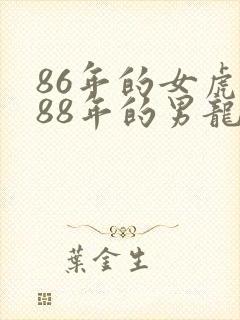 86年的女虎
88年的男龍
葉金生